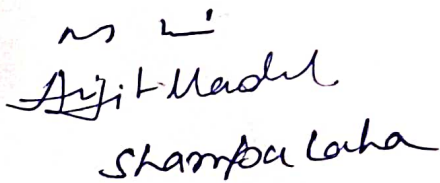 Arijit Mondal
Shampa Laha